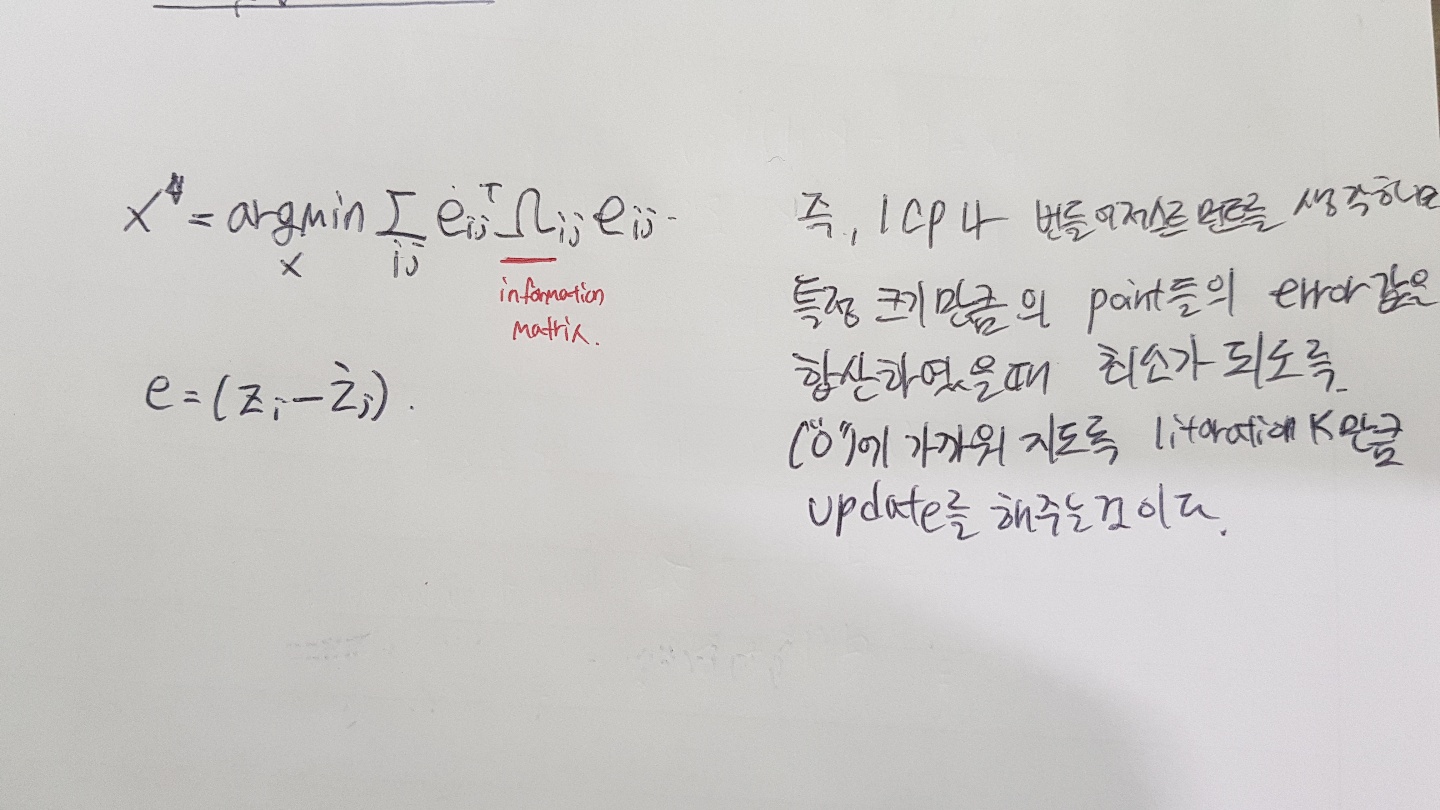 x* = argmin Σ eᵢⱼᵀ Ωᵢⱼ eᵢⱼ.
x ij
information
matrix.
e = (zᵢ - ẑⱼ).
즉, ICP나 번들어저스트먼트를 생각하면
특정 크기만큼의 point들의 error값을
합산하였을때 최소가 되도록
("0")에 가까워 지도록 iteration K만큼
update를 해주는것이다.